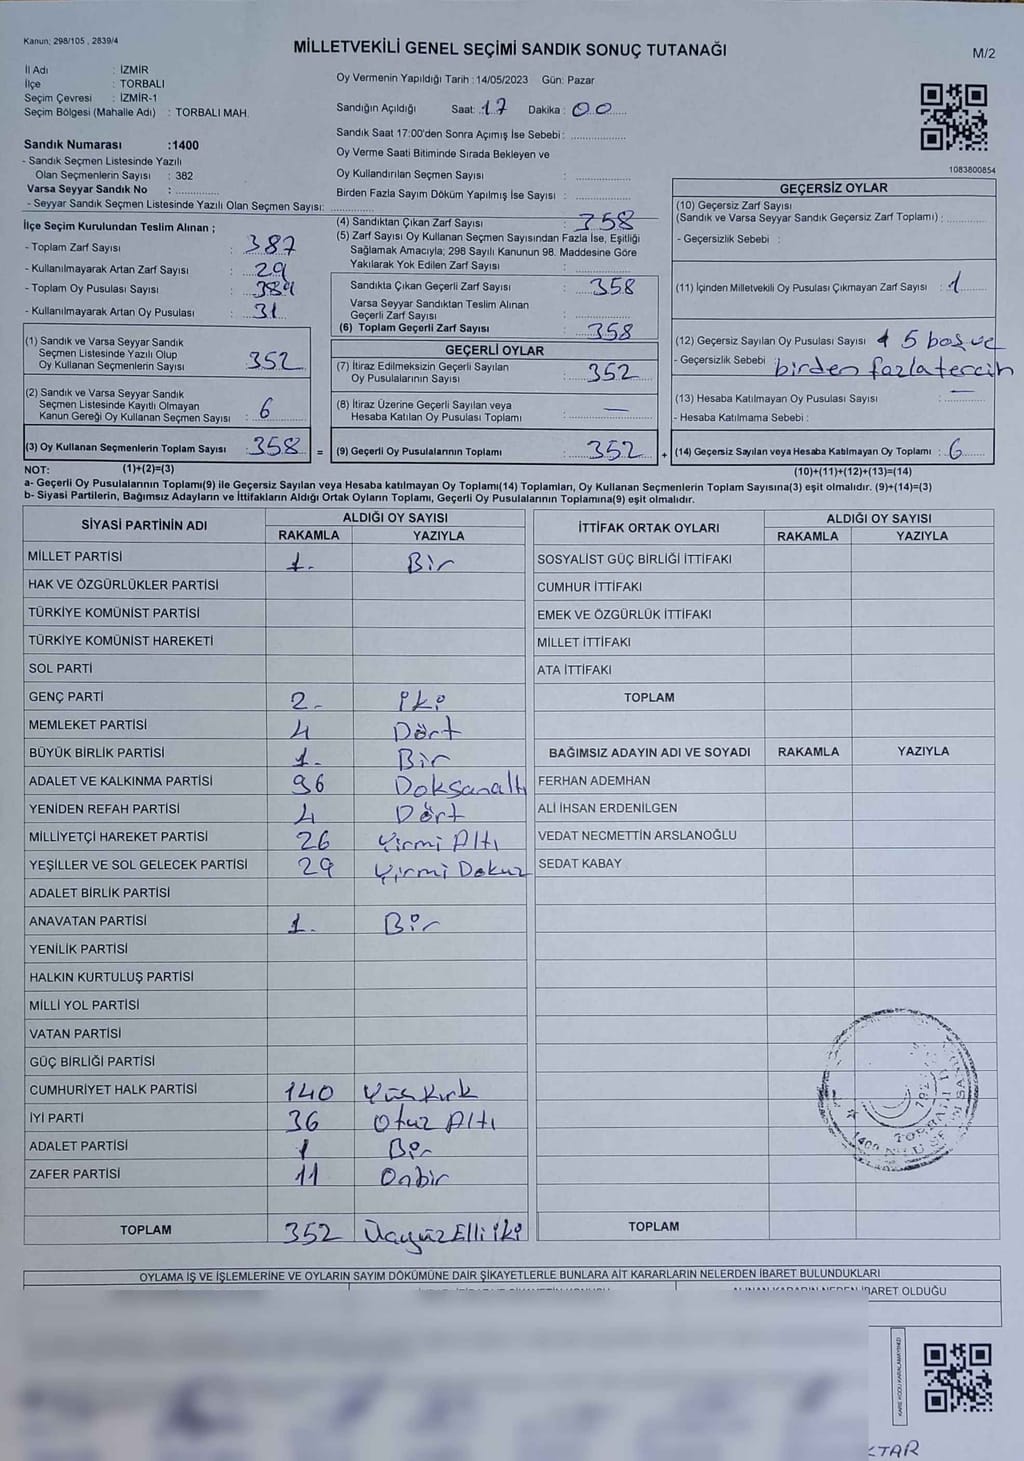 Kanun; 298/105 , 2839/4
MİLLETVEKİLİ GENEL SEÇİMİ SANDIK SONUÇ TUTANAĞI
M/2
İl Adı : İZMİR
İlçe : TORBALI
Seçim Çevresi : İZMİR-1
Seçim Bölgesi (Mahalle Adı) : TORBALI MAH.
Sandık Numarası :1400
- Sandık Seçmen Listesinde Yazılı
Olan Seçmenlerin Sayısı : 382
Varsa Seyyar Sandık No : ..............
- Seyyar Sandık Seçmen Listesinde Yazılı Olan Seçmen Sayısı: ..............
Oy Vermenin Yapıldığı Tarih : 14/05/2023 Gün: Pazar
Sandığın Açıldığı Saat: 17 Dakika : 00
Sandık Saat 17:00'den Sonra Açımış İse Sebebi : ..............
Oy Verme Saati Bitiminde Sırada Bekleyen ve
Oy Kullandırılan Seçmen Sayısı : ..............
Birden Fazla Sayım Döküm Yapılmış İse Sayısı : ..............
1083800854
İlçe Seçim Kurulundan Teslim Alınan ;
- Toplam Zarf Sayısı : 387
- Kullanılmayarak Artan Zarf Sayısı : 29
- Toplam Oy Pusulası Sayısı : 389
- Kullanılmayarak Artan Oy Pusulası : 31
(1) Sandık ve Varsa Seyyar Sandık
Seçmen Listesinde Yazılı Olup
Oy Kullanan Seçmenlerin Sayısı : 352
(2) Sandık ve Varsa Seyyar Sandık
Seçmen Listesinde Kayıtlı Olmayan
Kanun Gereği Oy Kullanan Seçmen Sayısı : 6
(3) Oy Kullanan Seçmenlerin Toplam Sayısı : 358 =
(4) Sandıktan Çıkan Zarf Sayısı : 358
(5) Zarf Sayısı Oy Kullanan Seçmen Sayısından Fazla İse, Eşitliği
Sağlamak Amacıyla; 298 Sayılı Kanunun 98. Maddesine Göre
Yakılarak Yok Edilen Zarf Sayısı : ..............
Sandıkta Çıkan Geçerli Zarf Sayısı : 358
Varsa Seyyar Sandıktan Teslim Alınan
Geçerli Zarf Sayısı : ..............
(6) Toplam Geçerli Zarf Sayısı : 358
GEÇERLİ OYLAR
(7) İtiraz Edilmeksizin Geçerli Sayılan
Oy Pusulalarının Sayısı : 352
(8) İtiraz Üzerine Geçerli Sayılan veya
Hesaba Katılan Oy Pusulası Toplamı : —
(9) Geçerli Oy Pusulalarının Toplamı : 352 +
GEÇERSİZ OYLAR
(10) Geçersiz Zarf Sayısı
(Sandık ve Varsa Seyyar Sandık Geçersiz Zarf Toplamı) : ..............
- Geçersizlik Sebebi :
(11) İçinden Milletvekili Oy Pusulası Çıkmayan Zarf Sayısı : 1
(12) Geçersiz Sayılan Oy Pusulası Sayısı 5 boş ve
- Geçersizlik Sebebi birden fazla tercih
(13) Hesaba Katılmayan Oy Pusulası Sayısı : —
- Hesaba Katılmama Sebebi :
(14) Geçersiz Sayılan veya Hesaba Katılmayan Oy Toplamı : 6
NOT: (1)+(2)=(3)
(10)+(11)+(12)+(13)=(14)
a- Geçerli Oy Pusulalarının Toplamı(9) ile Geçersiz Sayılan veya Hesaba katılmayan Oy Toplamı(14) Toplamları, Oy Kullanan Seçmenlerin Toplam Sayısına(3) eşit olmalıdır. (9)+(14)=(3)
b- Siyasi Partilerin, Bağımsız Adayların ve İttifakların Aldığı Ortak Oyların Toplamı, Geçerli Oy Pusulalarının Toplamına(9) eşit olmalıdır.
SİYASİ PARTİNİN ADI ALDIĞI OY SAYISI
RAKAMLA YAZIYLA
MİLLET PARTİSİ 1. Bir
HAK VE ÖZGÜRLÜKLER PARTİSİ
TÜRKİYE KOMÜNİST PARTİSİ
TÜRKİYE KOMÜNİST HAREKETİ
SOL PARTİ
GENÇ PARTİ 2- İki
MEMLEKET PARTİSİ 4 Dört
BÜYÜK BİRLİK PARTİSİ 1. Bir
ADALET VE KALKINMA PARTİSİ 96 Doksanaltı
YENİDEN REFAH PARTİSİ 4 Dört
MİLLİYETÇİ HAREKET PARTİSİ 26 Yirmi Altı
YEŞİLLER VE SOL GELECEK PARTİSİ 29 Yirmi Dokuz
ADALET BİRLİK PARTİSİ
ANAVATAN PARTİSİ 1. Bir
YENİLİK PARTİSİ
HALKIN KURTULUŞ PARTİSİ
MİLLİ YOL PARTİSİ
VATAN PARTİSİ
GÜÇ BİRLİĞİ PARTİSİ
CUMHURİYET HALK PARTİSİ 140 Yüzkırk
İYİ PARTİ 36 Otuz Altı
ADALET PARTİSİ 1 Bir
ZAFER PARTİSİ 11 Onbir
TOPLAM 352 Üçyüz Elli iki
İTTİFAK ORTAK OYLARI ALDIĞI OY SAYISI
RAKAMLA YAZIYLA
SOSYALİST GÜÇ BİRLİĞİ İTTİFAKI
CUMHUR İTTİFAKI
EMEK VE ÖZGÜRLÜK İTTİFAKI
MİLLET İTTİFAKI
ATA İTTİFAKI
TOPLAM
BAĞIMSIZ ADAYIN ADI VE SOYADI RAKAMLA YAZIYLA
FERHAN ADEMHAN
ALİ İHSAN ERDENİLGEN
VEDAT NECMETTİN ARSLANOĞLU
SEDAT KABAY
TOPLAM
OYLAMA İŞ VE İŞLEMLERİNE VE OYLARIN SAYIM DÖKÜMÜNE DAİR ŞİKAYETLERLE BUNLARA AİT KARARLARIN NELERDEN İBARET BULUNDUKLARI
ALINAN KARARIN NEDEN İBARET OLDUĞU
KARE KODU KARALAMAYINIZ!
KTAR